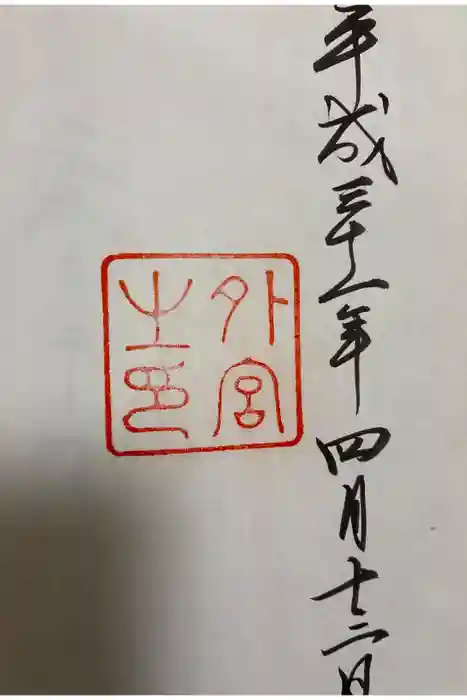 平成三十一年四月十二日
外宮
之印